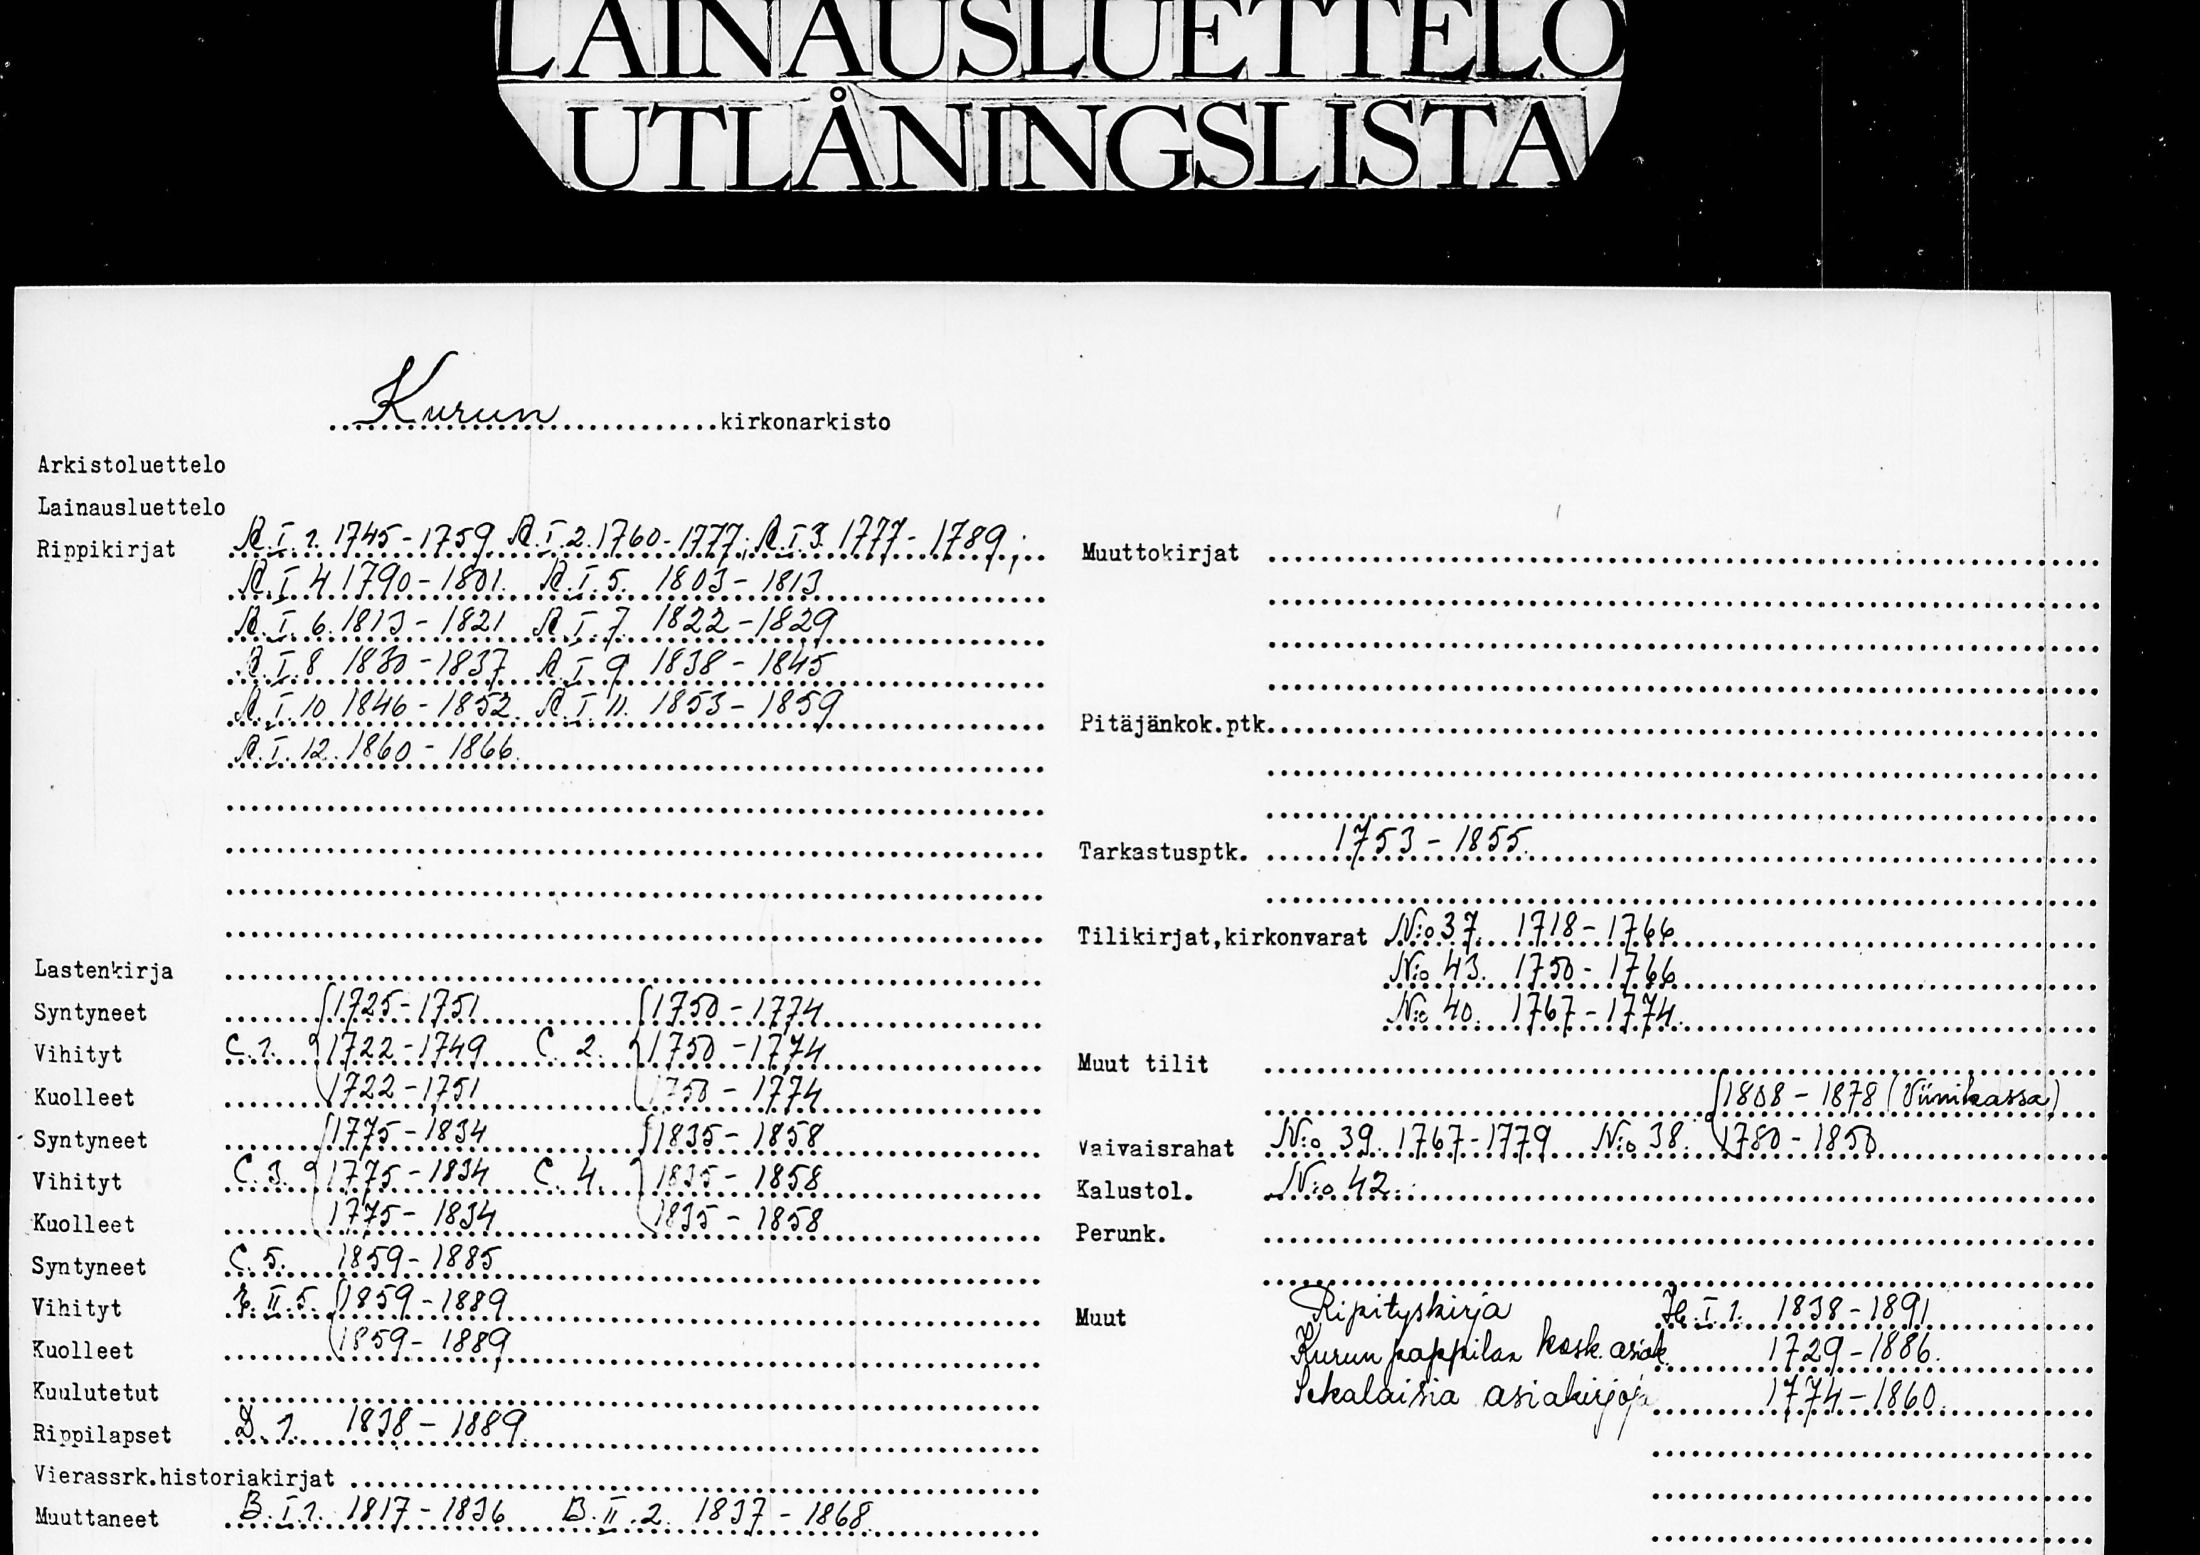 LAINAUSLUETTELO
UTLÅNINGSLISTA
Kurun kirkonarkisto
Arkistoluettelo
Lainausluettelo
Rippikirjat A.I.1. 1745-1759 A.I.2. 1760-1777; A.I.3. 1777-1789;
A.I.4 1790-1801. A.I.5. 1803-1813
A.I.6. 1813-1821 A.I.7. 1822-1829
A.I.8 1830-1837 A.I.9 1838-1845
A.I.10 1846-1852. A.I.11. 1853-1859
A.I.12. 1860-1866.
Lastenkirja
Syntyneet 1725-1751 1750-1774
Vihityt C.1. 1722-1749 C.2. 1750-1774
Kuolleet 1722-1751 1750-1774
Syntyneet 1775-1834 1835-1858
Vihityt C.3. 1775-1834 C.4. 1835-1858
Kuolleet 1775-1834 1835-1858
Syntyneet C.5. 1859-1885
Vihityt II.5. 1859-1889
Kuolleet 1859-1889
Kuulutetut
Rippilapset D.1. 1838-1889.
Vierassrk.historiakirjat
Muuttaneet B.I.1. 1817-1836 B.II.2. 1837-1868.
Muuttokirjat
Pitäjänkok.ptk.
Tarkastusptk. 1753-1855.
Tilikirjat,kirkonvarat N:o 37. 1718-1766
N:o 43. 1750-1766
N:o 40. 1767-1774.
Muut tilit
1808-1878 (Viinikassa)
Vaivaisrahat N:o 39. 1767-1779 N:o 38. 1780-1850
Kalustol. N:o 42.
Perunk.
Muut Ripityskirja H.I.1. 1838-1891
Kurun pappilan kosk. asiak. 1729-1886.
Sekalaisia asiakirjoja 1774-1860.